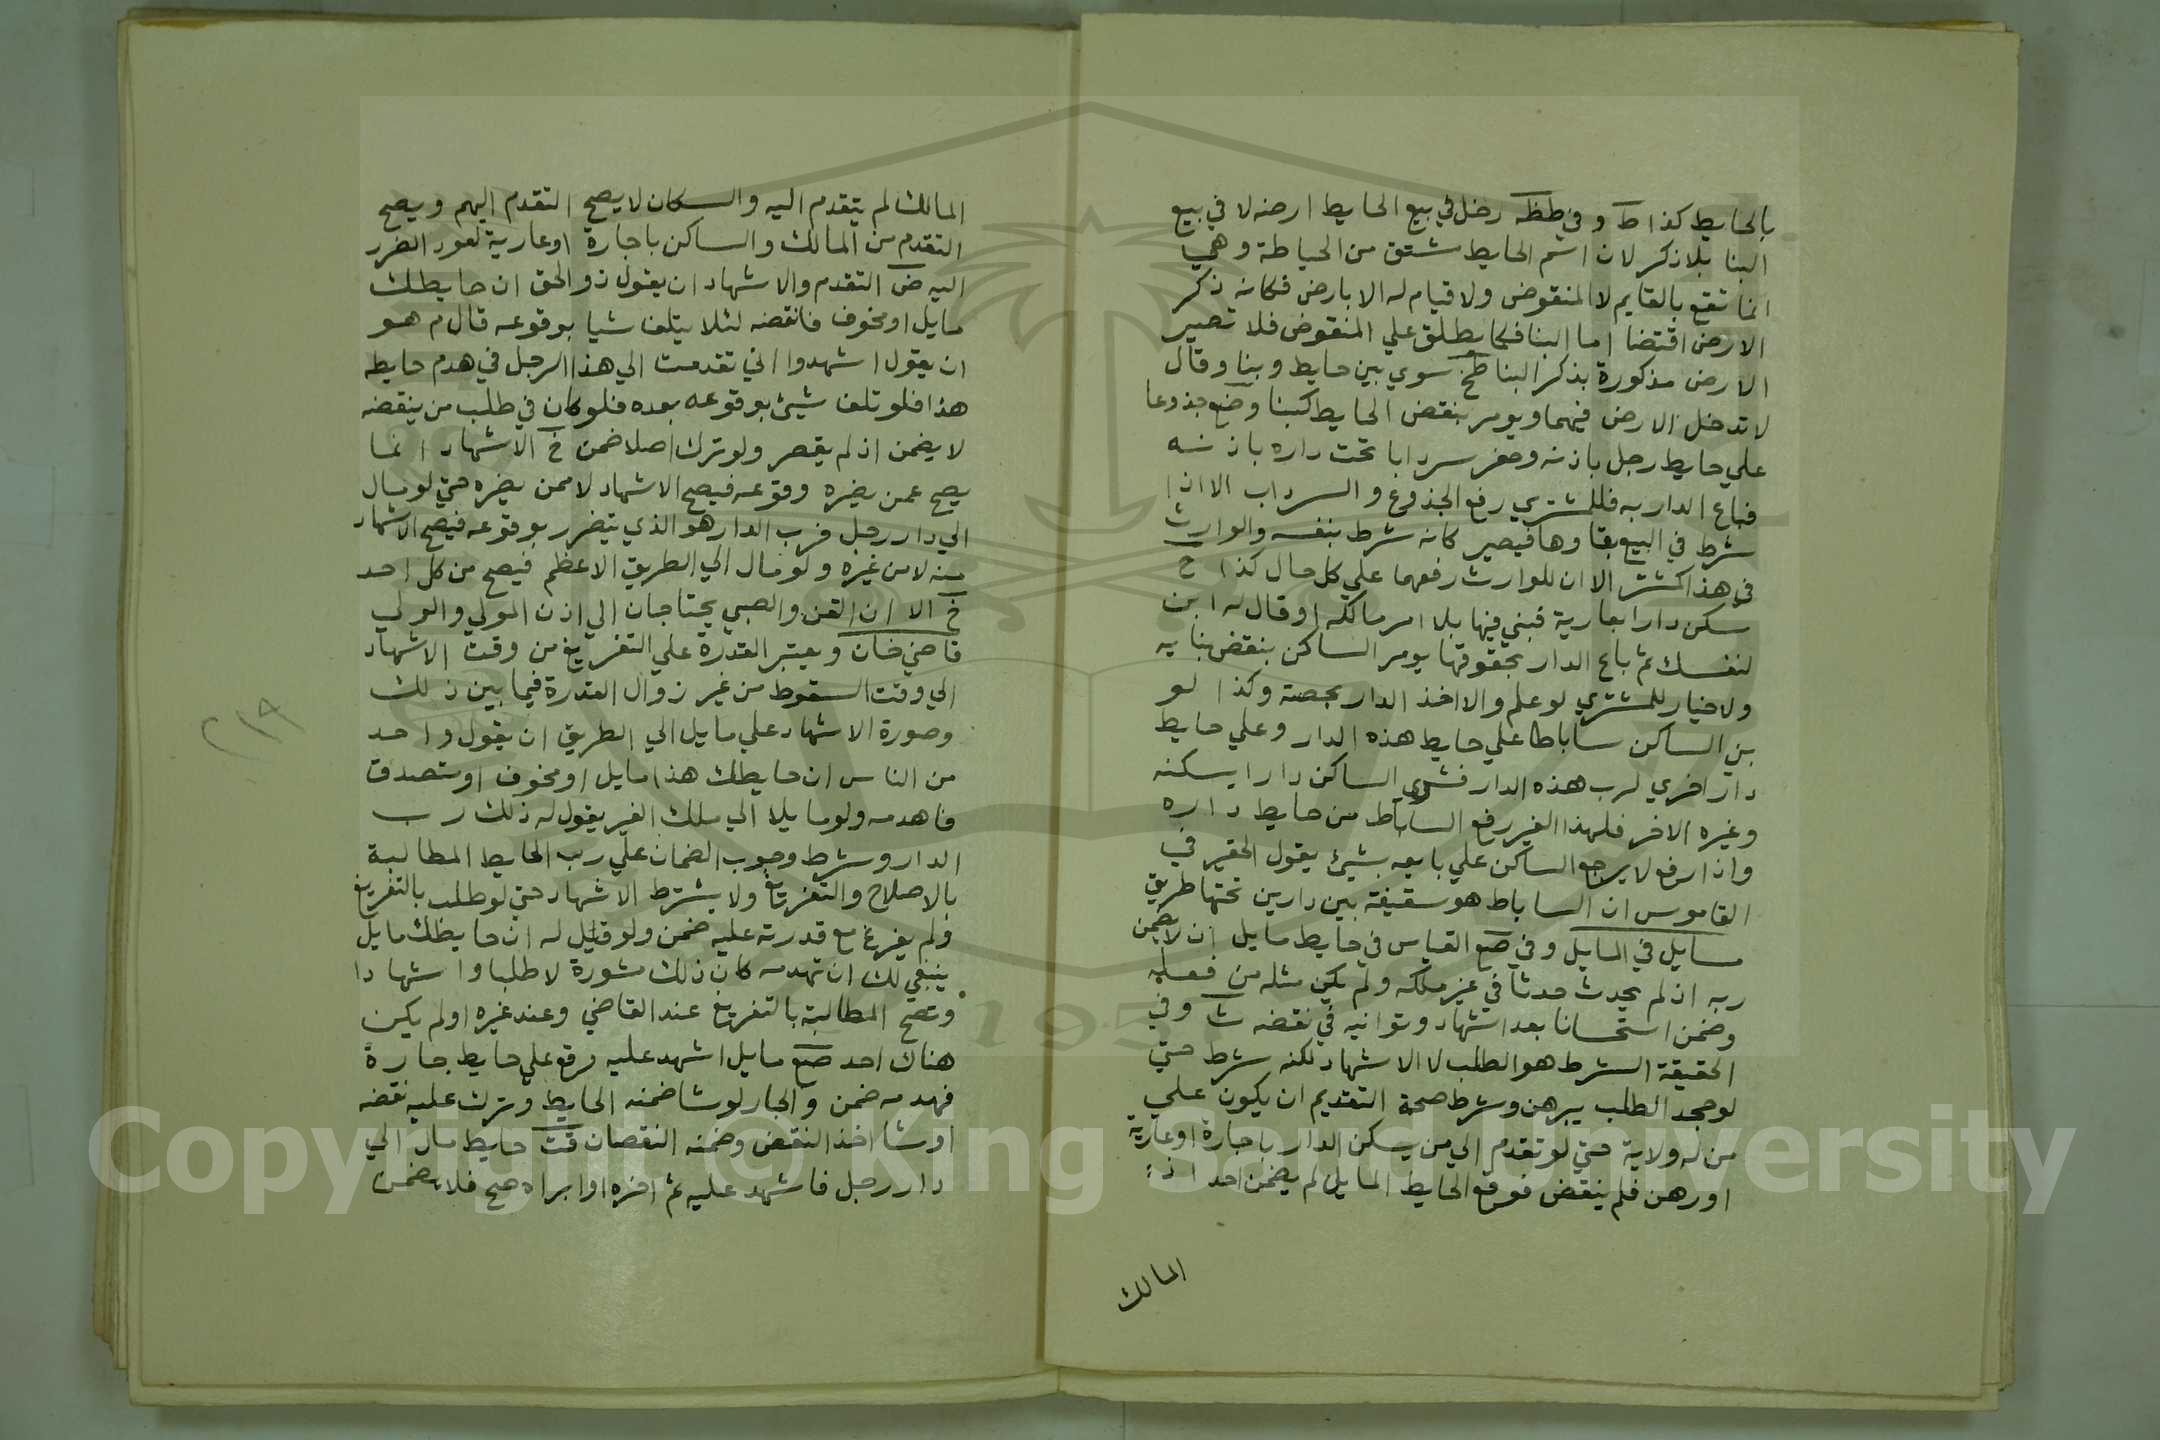 بالحايط كذا ط وفي طظه دخل في بيع الحايط ارضه لا في بيع
البنا بلا ذكر لان اسم الحايط مشتق من الحياطة وهي
انما تقع بالقايم لا المنقوض ولا قيام له الا بارض فكانه ذكر
الارض اقتضا اما البنا فكما يطلق علي المنقوض فلا تصير
الارض مذكورة بذكر البنا طخ سوي بين حايط وبنا وقال
لا تدخل الارض فيهما ويومر بنقض الحايط كبنا وضع جذوعا
علي حايط رجل باذنه وحفر سردابا تحت داره باذنه
فباع الدار ربه فللمشتري رفع الجذوع والسرداب الا اذا
شرط في البيع بقاوها فيصير كانه شرط بنفسه والوارث
في هذا كمشتر الا ان للوارث رفعهما علي كل حال كذا خ
سكن دارا بعارية فبني فيها بلا امر مالكه او قال له ابن
لنفسك ثم باع الدار بحقوقها يومر الساكن بنقض بنايه
ولا خيار للمشتري لو علم والا اخذ الدار بحصته وكذا لو
بن الساكن ساباطا علي حايط هذه الدار وعلي حايط
دار اخري لرب هذه الدار فشري الساكن دارا يسكنه
وغيره الاخر فلهذا الغير رفع الساباط من حايط داره
واذا رفع لا يرجع الساكن علي بايعه بشيئ يقول الحقير في
القاموس ان الساباط هو سقيفة بين دارين تحتها طريق
مسايل في المايل وفي صع القياس في حايط مايل ان لا يضمن
ربه اذ لم يحدث حدثا في غير ملكه ولم يكن مثله من فعله
وضمن استحسانا بعد اشهاد وتوانيه في نقضه ث وفي
الحقيقة الشرط هو الطلب لا الاشهاد لكنه شرط حتي
لو جحد الطلب يبرهن وشرط صحة التقديم ان يكون علي
من له ولاية حتي لو تقدم الي من يسكن الدار باجارة او عارية
او رهن فلم ينقض فوقع الحايط المايل لم يضمن احد اذ
المالك
المالك لم يتقدم اليه والسكان لا يصح التقدم اليهم ويصح
التقدم من المالك والساكن باجارة او عارية لعود الضرر
اليه ض التقدم والاشهاد ان يقول ذو الحق ان حايطك
مايل او مخوف فانقضه لئلا يتلف شيا بوقوعه قال م هو
ان يقول اشهدوا اني تقدمت الي هذا الرجل في هدم حايطه
هذا فلو تلف شيئ بوقوعه بعده فلو كان في طلب من ينقضه
لا يضمن اذ لم يقصر ولو ترك اصلا ضمن خ الاشهاد انما
يصح عمن يضره وقوعه فيصح الاشهاد لا ممن يضره حتي لو مال
الي دار رجل فرب الدار هو الذي يتضرر بوقوعه فيصح الاشهاد
منه لا من غيره ولو مال الي الطريق الاعظم فيصح من كل احد
خ الا ان القن والصبي يحتاجان الي اذن المولي والولي
قاضي خان ويعتبر القدرة علي التفريغ من وقت الاشهاد
الي وقت السقوط من غير زوال القدرة فيما بين ذلك
وصورة الاشهاد علي مايل الي الطريق ان يقول واحد
من الناس ان حايطك هذا مايل او مخوف او متصدق
فاهدمه ولو مايلا الي ملك الغير يقول له ذلك رب
الدار وشرط وجوب الضمان علي رب الحايط المطالبة
بالاصلاح والتفريغ ولا يشترط الاشهاد حتي لو طلب بالتفريغ
ولم يفرغ مع قدرته عليه ضمن ولو قيل له ان حايطك مايل
ينبغي لك ان تهدمه كان ذلك مشورة لا طلبا واشهادا
وتصح المطالبة بالتفريغ عند القاضي وعند غيره او لم يكن
هناك احد صع مايل اشهد عليه فوقع علي حايط جاره
فهدمه ضمن والجار لو شا ضمنه الحايط وترك عليه نقضه
او شا اخذ النقض وضمنه النقصان قت حايط مال الي
دار رجل فاشهد عليه ثم اخره او ابراه صح فلا يضمن
٢١٩
Copyright © King Saud University
1957